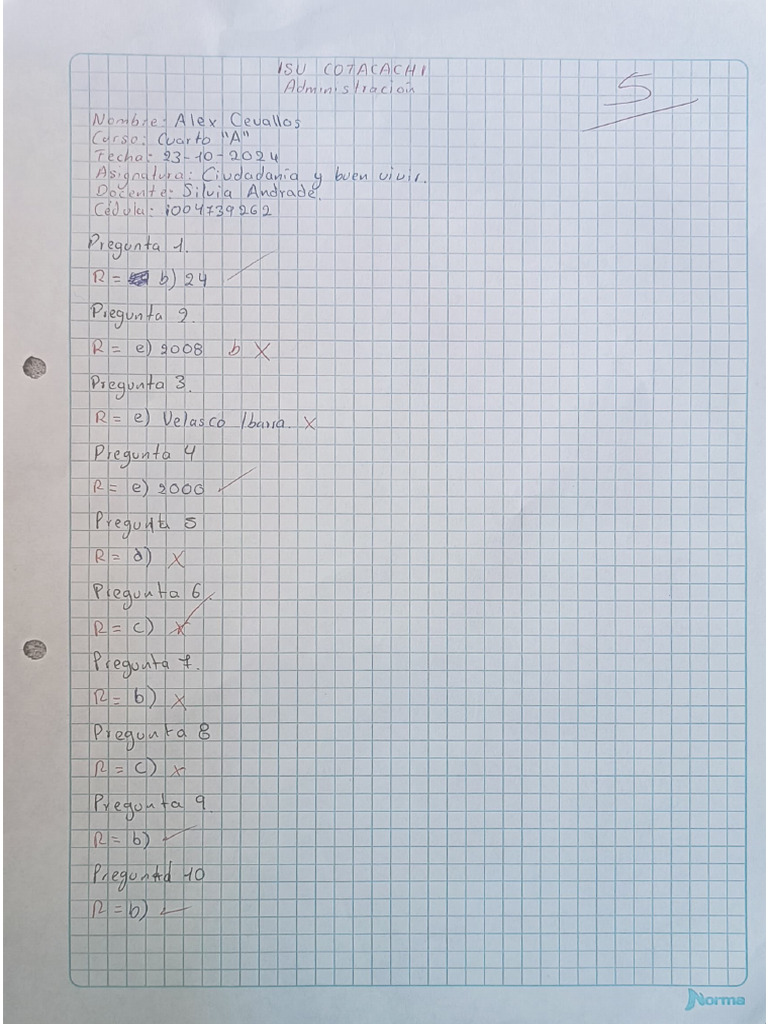 ISU COTACACHI
Administración
5
Nombre: Alex Cevallos
Curso: Cuarto "A"
Fecha: 23-10-2024
Asignatura: Ciudadanía y buen vivir.
Docente: Silvia Andrade.
Cédula: 1004739262
Pregunta 1.
R = b) 24
Pregunta 2.
R = e) 2008 b X
Pregunta 3.
R = e) Velasco Ibarra. X
Pregunta 4
R = e) 2000
Pregunta 5
R = d) X
Pregunta 6.
R = c) X
Pregunta 7.
R = b) X
Pregunta 8
R = c) X
Pregunta 9.
R = b)
Pregunta 10
R = b)
Norma